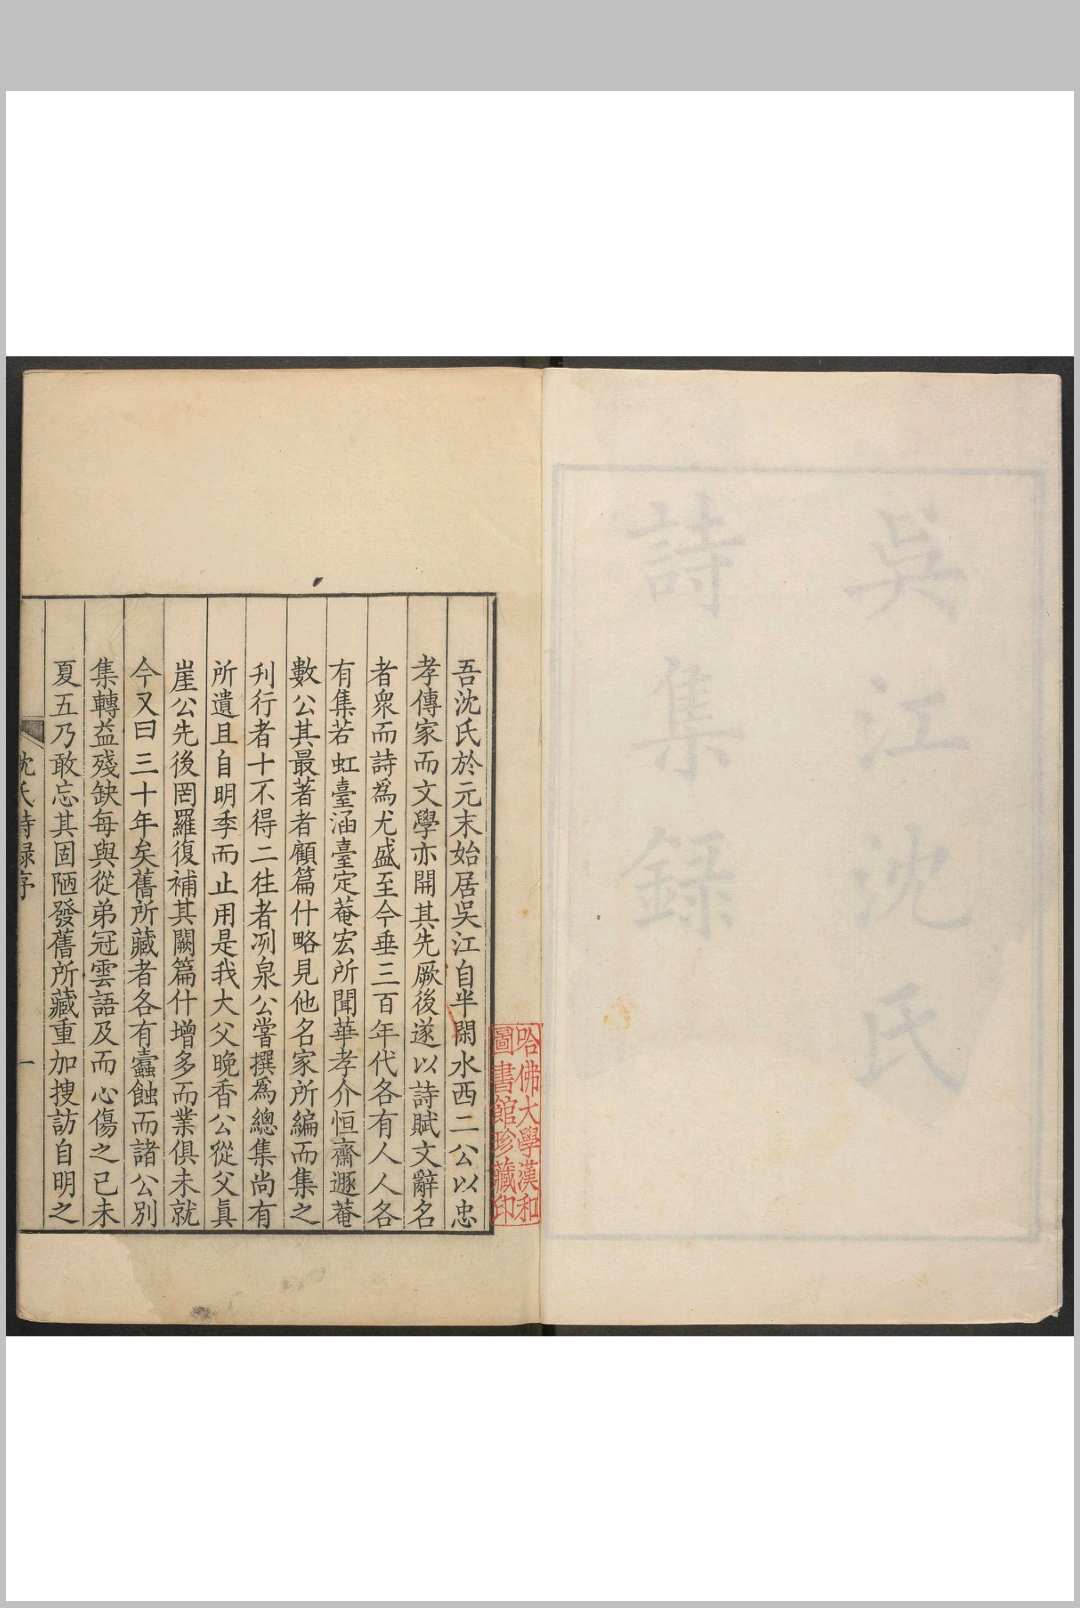 吳江沈氏
詩集録
哈佛大學漢和
圖書館珍藏印
吾沈氏於元末始居吳江自半閑水西二公以忠
孝傳家而文學亦開其先厥後遂以詩賦文辭名
者衆而詩爲尤盛至今垂三百年代各有人人各
有集若虹臺涵臺定菴宏所聞華孝介恒齋遯菴
數公其最著者顧篇什略見他名家所編而集之
刋行者十不得二徃者冽泉公嘗撰爲總集尚有
所遺且自明季而止用是我大父晚香公從父眞
崖公先後罔羅復補其闕篇什增多而業俱未就
今又曰三十年矣舊所藏者各有蠧蝕而諸公別
集轉益殘缺每與從弟冠雲語及而心傷之己未
夏五乃敢忘其固陋發舊所藏重加搜訪自明之
沈氏詩録序
一